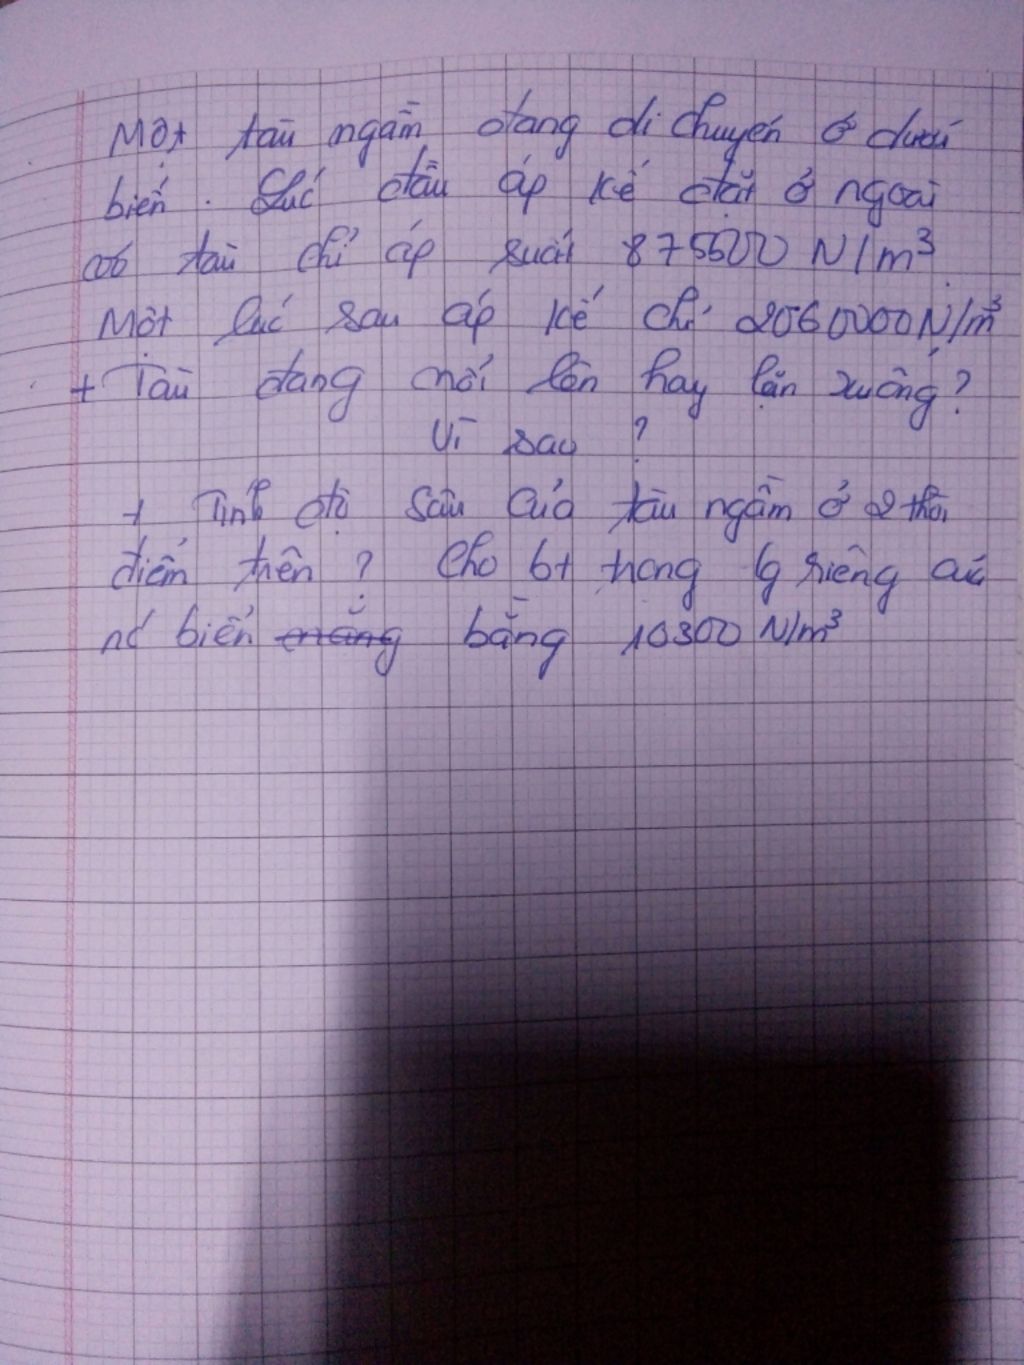 Một tàu ngầm đang di chuyển ở dưới
biển. Lúc đầu áp kế đặt ở ngoài
vỏ tàu chỉ áp suất 875500 N/m³
Một lúc sau áp kế chỉ 2060000N/m³
+ Tàu đang nổi lên hay lặn xuống?
Vì sao ?
+ Tính độ sâu của tàu ngầm ở 2 thời
điểm trên ? Cho bt trọng lg riêng của
nc biển bằng 10300 N/m³